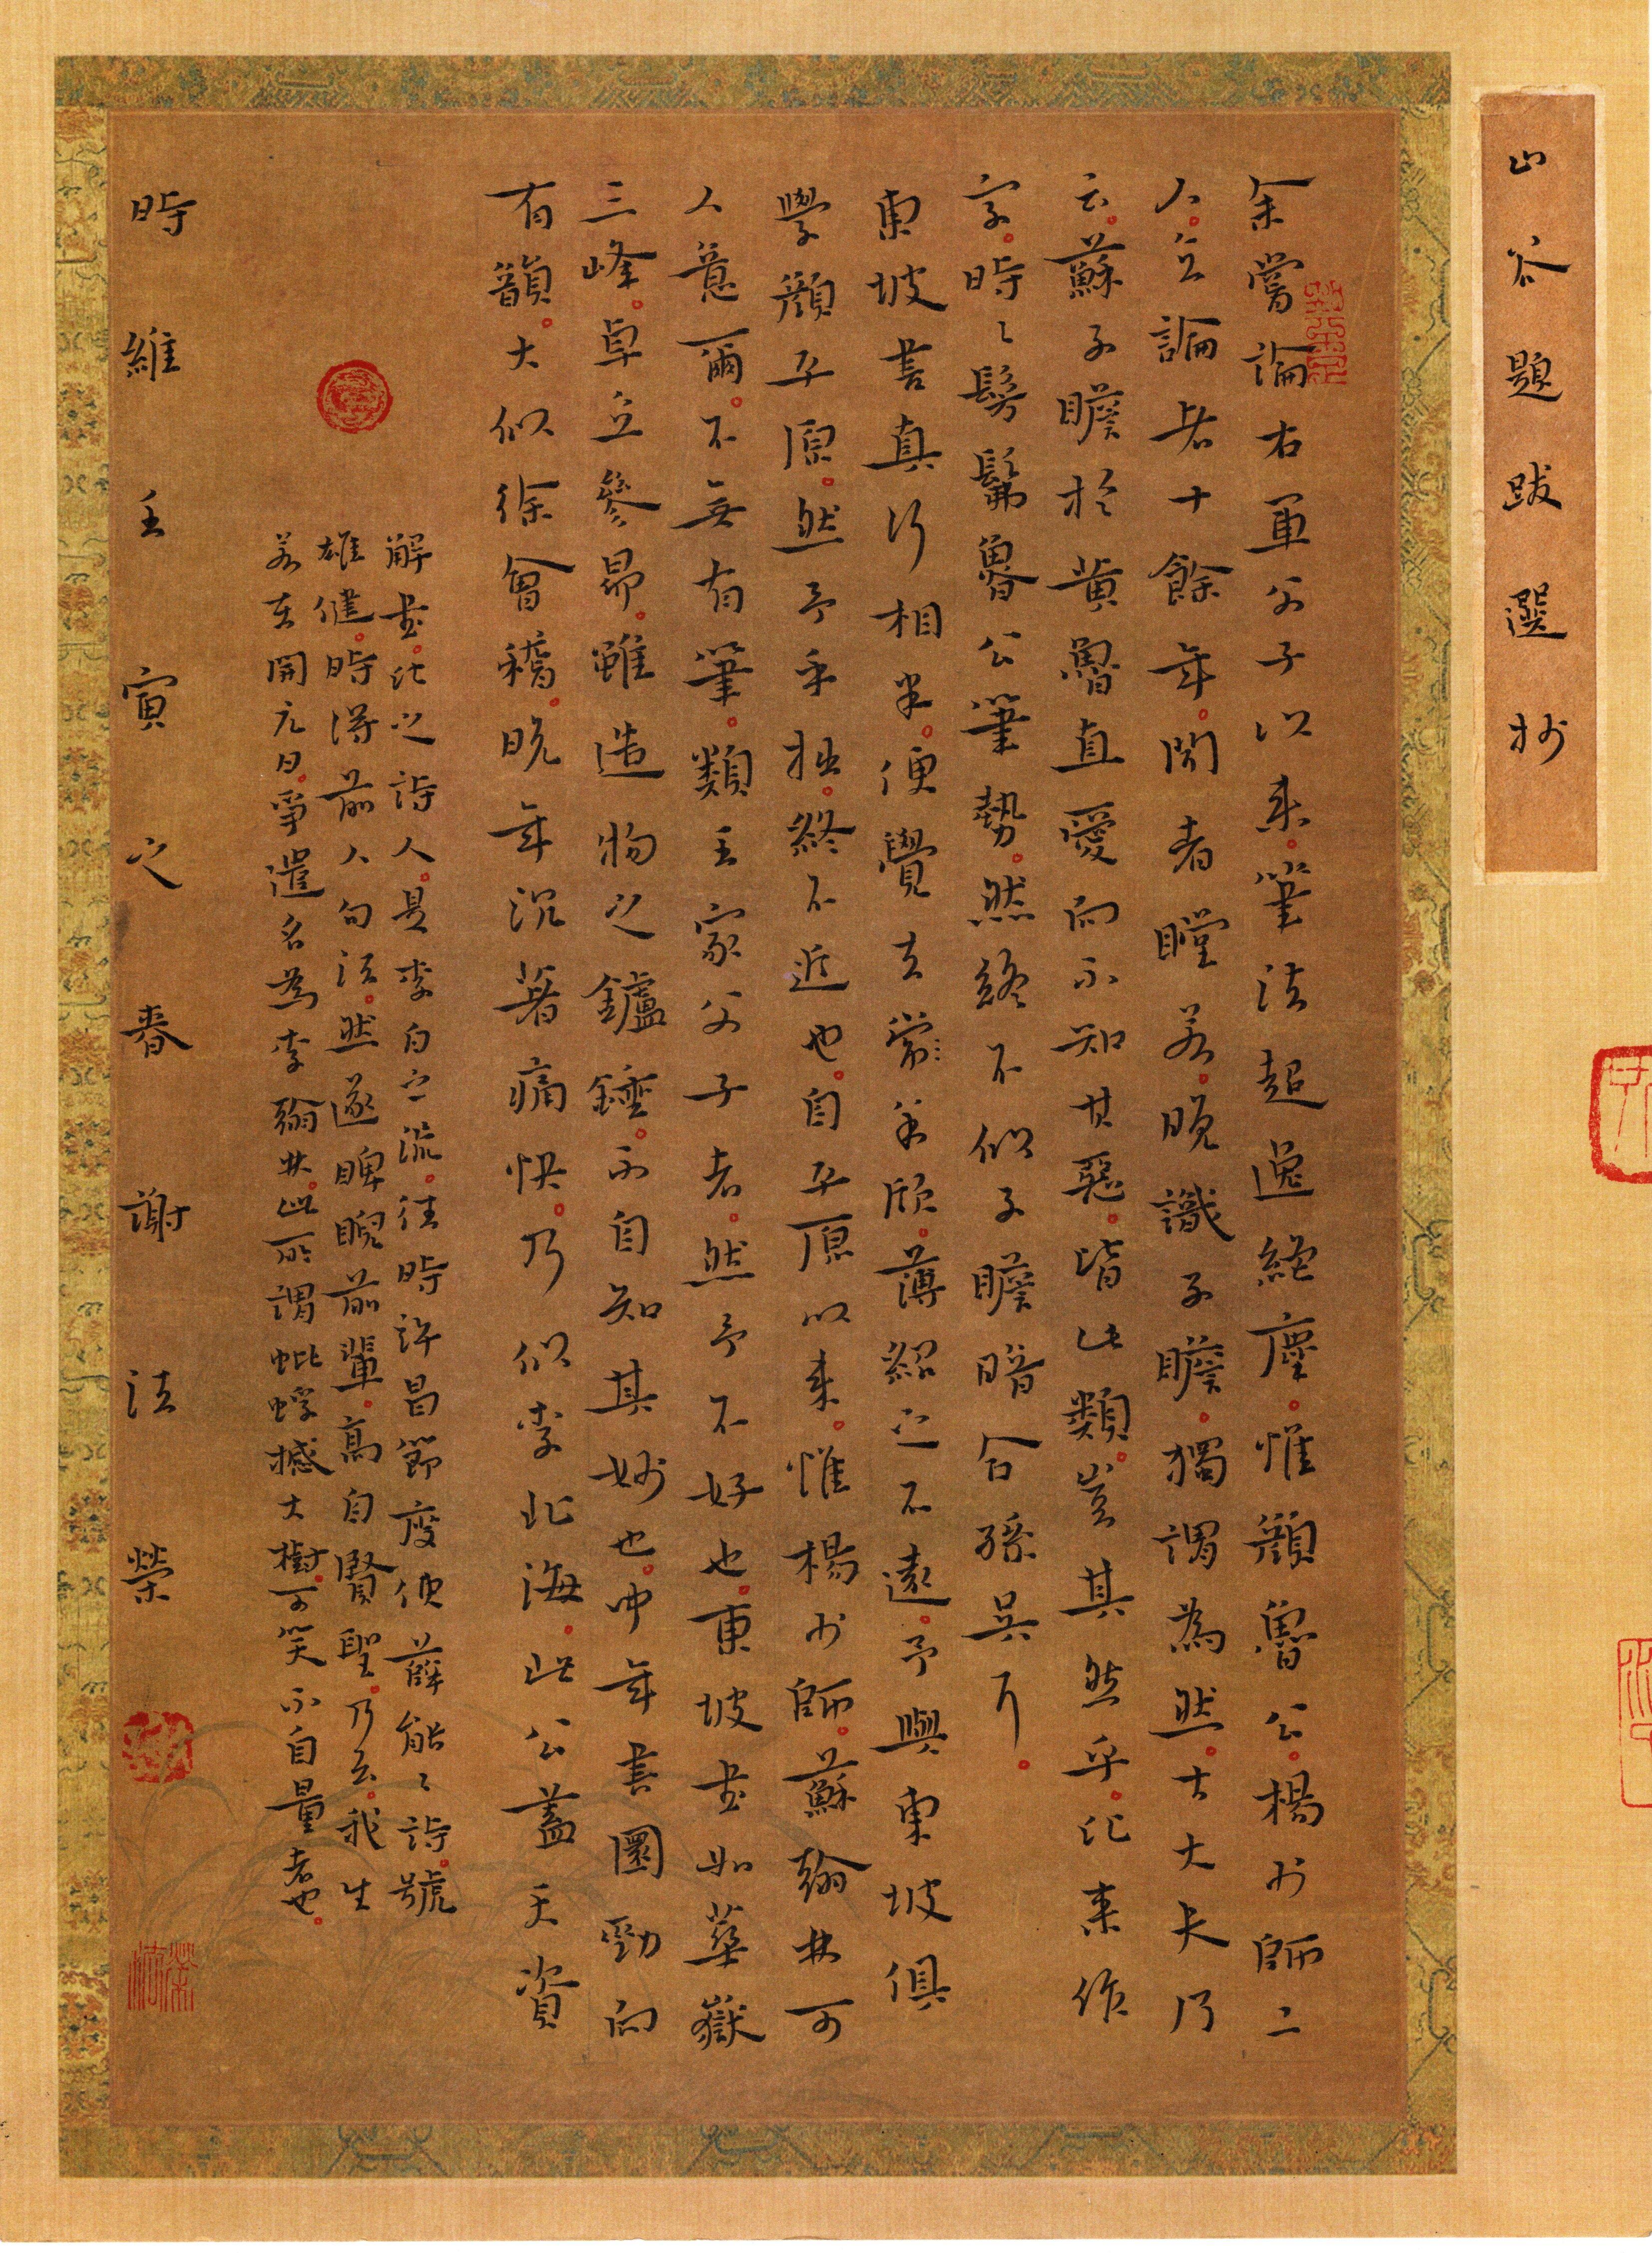 山谷題跋選抄
余嘗論右軍父子以來。筆法超逸絕塵。惟顏魯公。楊少師二
人。立論者十餘年。聞者瞠若。晚識子瞻。獨謂為然。士大夫乃
云。蘇子瞻於黃魯直愛而不知其惡。皆此類。豈其然乎。比來作
字。時〻髣髴魯公筆勢。然終不似子瞻暗合孫吳耳。
東坡書真行相半。便覺去羊欣。薄紹之不遠。予與東坡俱
學顏平原。然予手拙。終不近也。自平原以來。惟楊少師。蘇翰林可
人意爾。不無有筆。類王家父子者。然予不好也。東坡書如華嶽
三峰。卓立參昴。雖造物之鑪錘。不自知其妙也。中年書圜勁而
有韻。大似徐會稽。晚年沉著痛快。乃似李北海。此公蓋天資
解書。比之詩人。是李白之流。往時許昌節度使薛能〻詩。號
雄健。時得前人句法。然遂睥睨前輩。高自賢聖。乃云。我生
若在開元日。爭遣名為李翰林。此所謂蚍蜉撼大樹。可笑不自量者也。
時維壬寅之春謝法榮